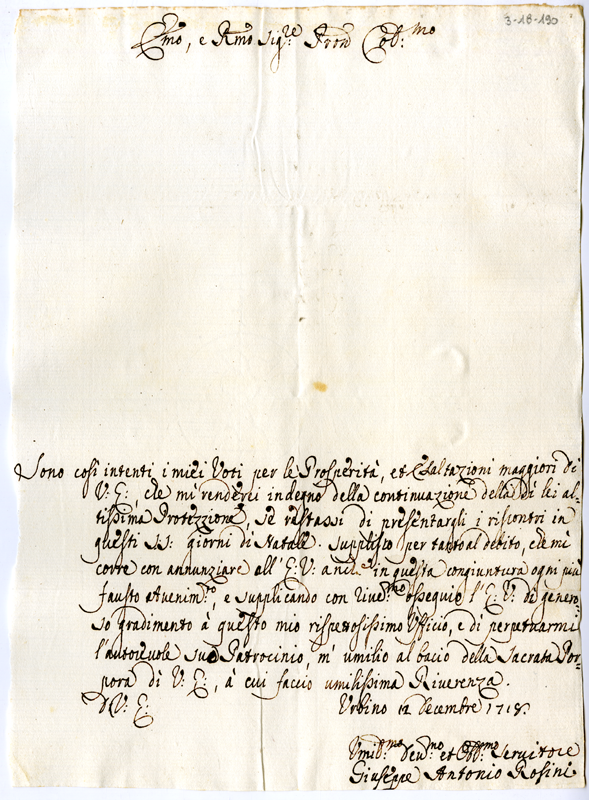 3-18-190
Emo, e Rmo Sig.re Pron Col:mo
Sono così intenti i miei Voti per le Prosperità, et Esaltazioni maggiori di
V: E:, che mi renderei indegno della continuazione della di lei al-
tissima Protezzione, se restassi di presentargli i riscontri in
questi SS: giorni di Natale. Supplisco per tanto al debito, che mi
corre con annunziare all'E: V: anche in questa congiuntura ogni più
fausto Avenim.to, e supplicando con rive:mo ossequio l'E: V: di genero-
so gradimento à questo mio rispettosissimo Ufficio, e di perpetuarmi
l'autorevole suo Patrocinio, m'umilio al bacio della Sacrata Por-
pora di V: E:, à cui faccio umilissima Riverenza.
D V: E:
Urbino 12 Decembre 1718.
Umil:mo Dev:mo et Obb:mo Servitore
Giuseppe Antonio Rosini